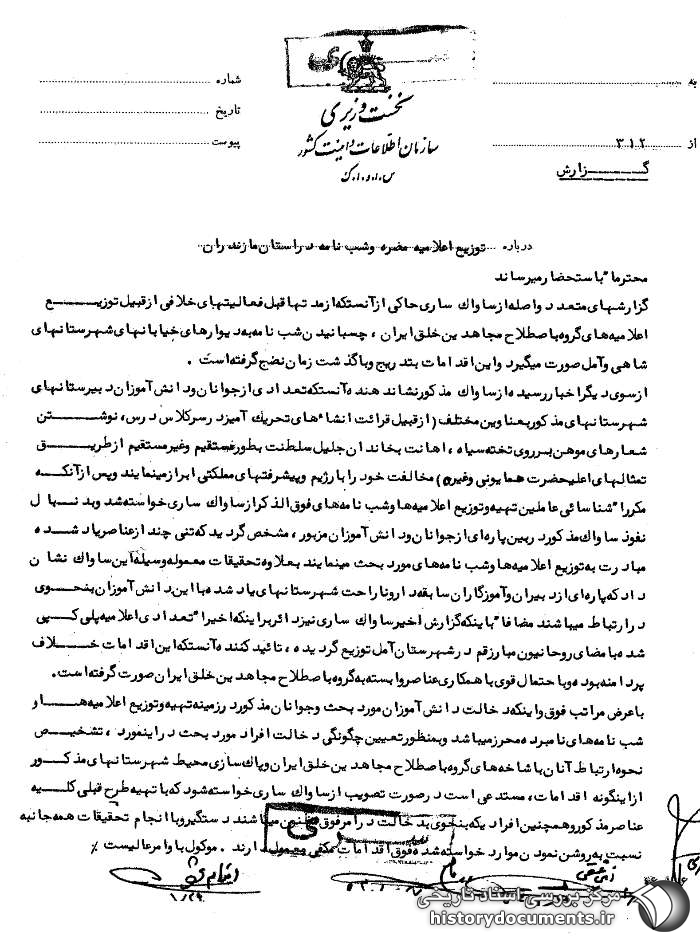 به
شماره
نخست وزیری
تاریخ
سازمان اطلاعات و امنیت کشور
از ۳۱۲
پیوست
س.ا.و.ا.ک
گزارش
درباره توزیع اعلامیه مضره و شب نامه در استان مازندران
محترما" باستحضار میرساند
گزارشهای متعدد واصله از ساواک ساری حاکی از آنستکه از مدتها قبل فعالیتهای خلافی از قبیل توزیع
اعلامیه های گروه باصطلاح مجاهدین خلق ایران ، چسبانیدن شب نامه به دیوارهای خیابانهای شهرستانهای
شاهی و آمل صورت میگیرد و این اقدامات بتدریج و با گذشت زمان نضج گرفته است .
از سوی دیگر اخبار رسیده از ساواک مذکور نشاندهنده آنستکه تعدادی از جوانان و دانش آموزان دبیرستانهای
شهرستانهای مذکور بعناوین مختلف (از قبیل قرائت انشاءهای تحریک آمیز در سر کلاس درس، نوشتن
شعارهای موهن بر روی تخته سیاه ، اهانت بخاندان جلیل سلطنت بطور مستقیم و غیر مستقیم از طریق
تمثالهای اعلیحضرت همایونی و غیره) مخالفت خود را با رژیم و پیشرفتهای مملکتی ابراز مینمایند و پس از آنکه
مکررا" شناسائی عاملین تهیه و توزیع اعلامیه ها و شب نامه های فوق الذکر از ساواک ساری خواسته شد و بدنبال
نفوذ ساواک مذکور در بین پاره ای از جوانان و دانش آموزان مزبور ، مشخص گردید که تنی چند از عناصر یاد شده
مبادرت به توزیع اعلامیه ها و شب نامه های مورد بحث مینمایند بعلاوه تحقیقات معموله وسیله این ساواک نشان
داد که پاره ای از دبیران و آموزگاران سابقه دار و ناراحت شهرستانهای یاد شده با این دانش آموزان بنحوی
در ارتباط میباشند مضافا" باینکه گزارش اخیر ساواک ساری نیز دائر براینکه اخیرا" تعدادی اعلامیه پلی کپی
شده با مضای روحانیون مبارز قم در شهرستان آمل توزیع گردیده ، تائید کننده آنستکه این اقدامات خلاف
پر دامنه بوده و با احتمال قوی با همکاری عناصر وابسته به گروه باصطلاح مجاهدین خلق ایران صورت گرفته است.
با عرض مراتب فوق و اینکه دخالت دانش آموزان مورد بحث و جوانان مذکور در زمینه تهیه و توزیع اعلامیه ها و
شب نامه های نامبرده محرز میباشد و بمنظور تعیین چگونگی دخالت افراد مورد بحث در اینمورد ، تشخیص
نحوه ارتباط آنان با شاخه های گروه باصطلاح مجاهدین خلق ایران و پاک سازی محیط شهرستانهای مذکور
از اینگونه اقدامات ، مستدعی است در صورت تصویب از ساواک ساری خواسته شود که با تهیه طرح قبلی کلیه
عناصر مذکور و همچنین افرادیکه بنحوی بدخالت در امر فوق مظنون میباشند دستگیر و با انجام تحقیقات همه جانبه
نسبت به روشن نمودن موارد خواسته شده فوق اقدامات مکفی معمول دارند . موکول باوامر عالیست ٪
مرکز بررسی اسناد تاریخی
historydocuments.ir